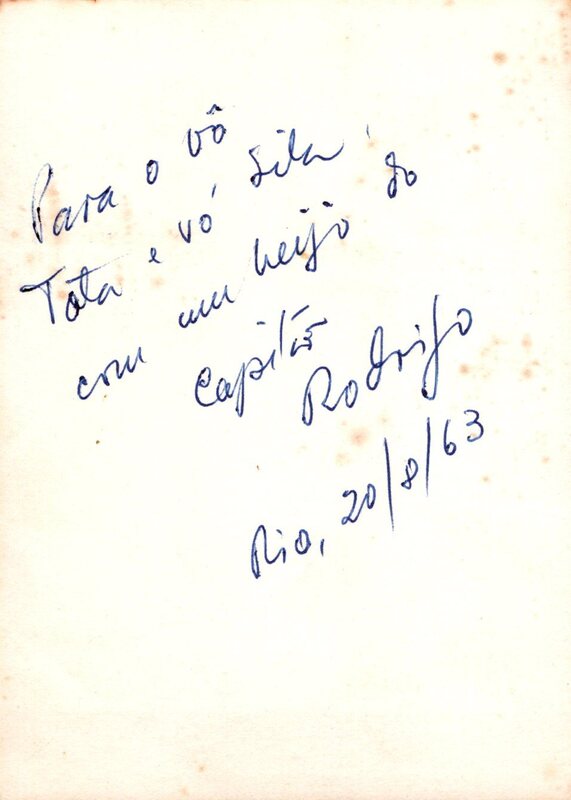 Para o vô
Tota e vó Sila
com um beijo do
Capitão
Rodrigo
Rio, 20/8/63